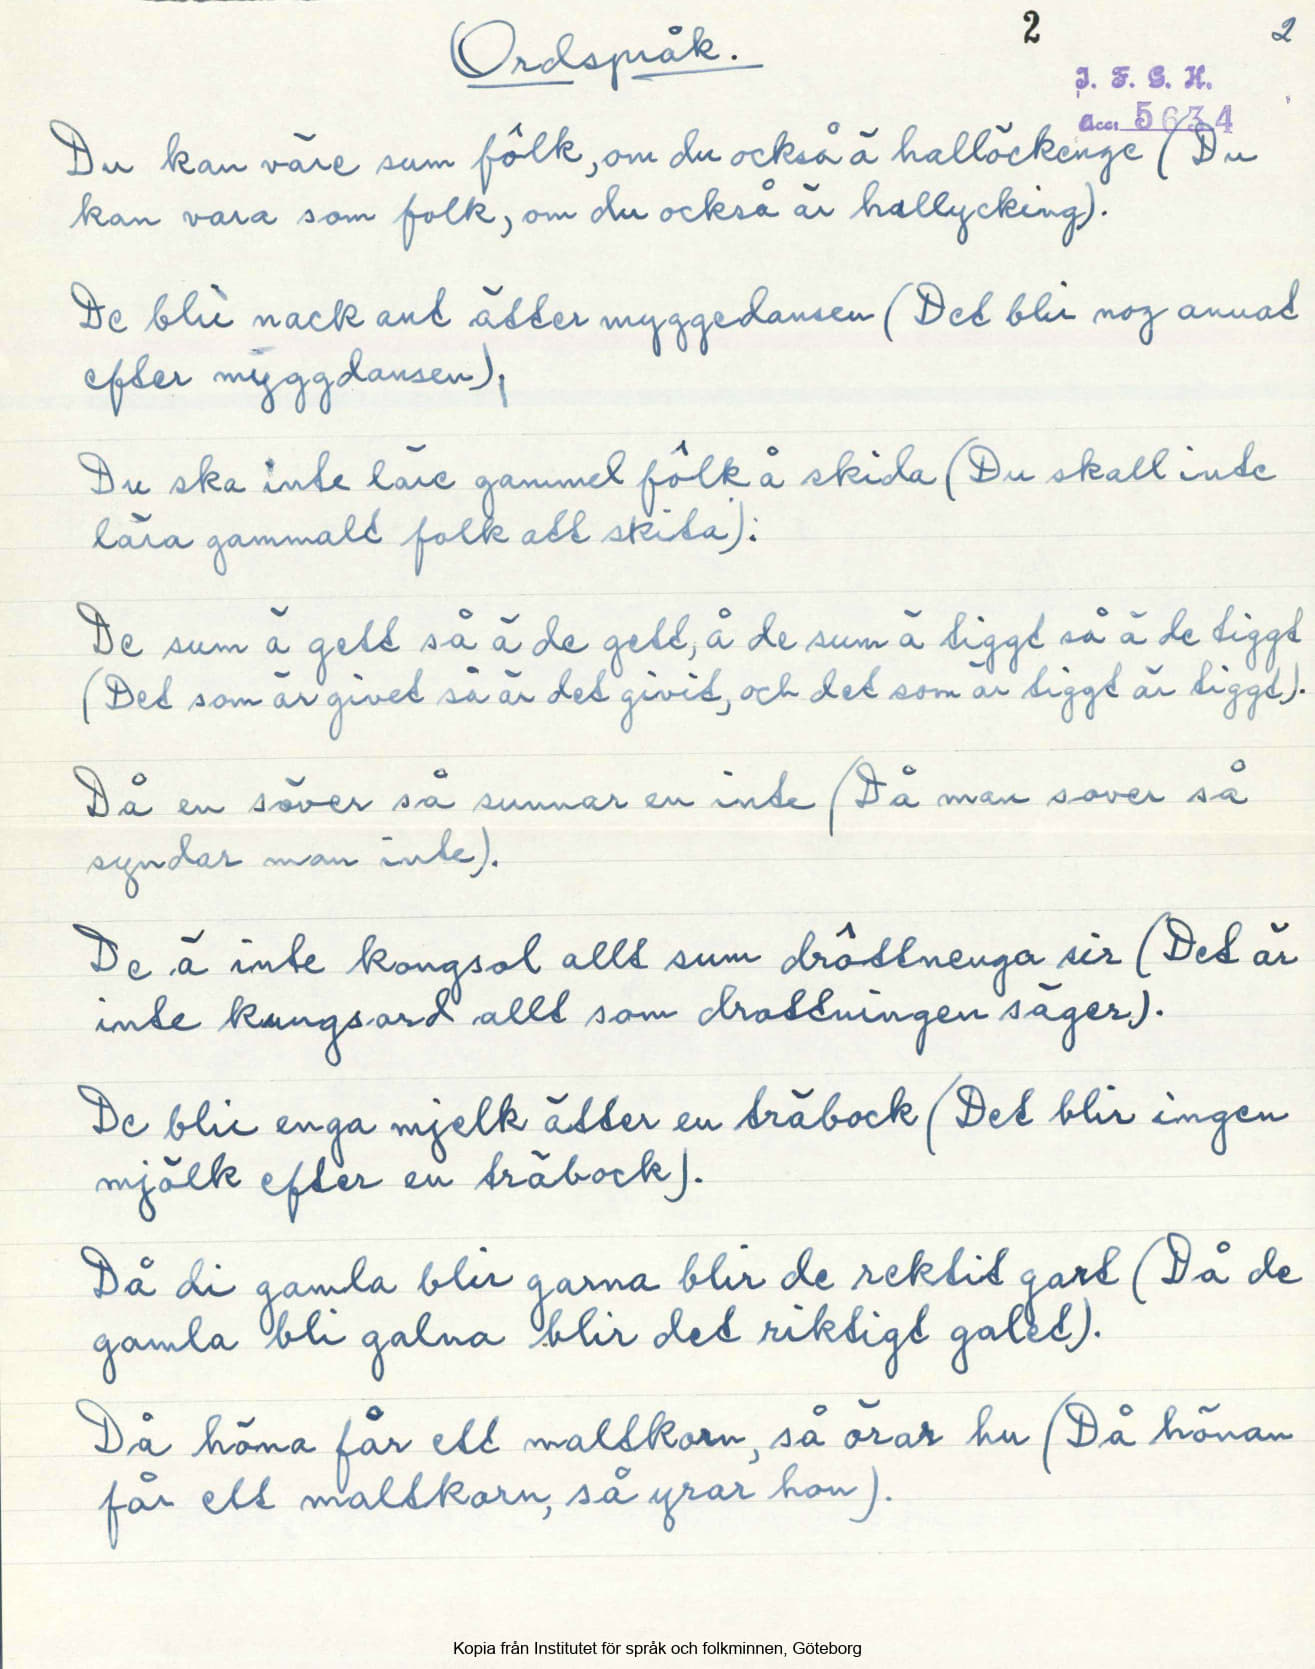 2
2
Ordspråk.
I. F. G. H.
Acc. 5634
Du kan väre sum fôlk, om du också ä hallöckenge (Du
kan vara som folk, om du också är hallycking).
De blir nack ant ätter myggedansen (Det blir nog annat
efter myggdansen).
Du ska inte läre gammel fôlk å skida (Du skall inte
lära gammalt folk att skita).
De sum ä gett så ä de gett, å de sum ä tiggt så ä de tiggt
(Det som är givet så är det givit, och det som är tiggt är tiggt).
Då en söver så sunnar en inte (Då man sover så
syndar man inte).
De ä inte kongsol allt sum drôttnenga sir (Det är
inte kungsord allt som drottningen säger).
De blir enga mjelk ätter en träbock (Det blir ingen
mjölk efter en träbock).
Då di gamla blir garna blir de rektit gart (Då de
gamla bli galna blir det riktigt galet).
Då höna får ett maltkorn, så örar hu (Då hönan
får ett maltkorn, så yrar hon).
Kopia från Institutet för språk och folkminnen, Göteborg